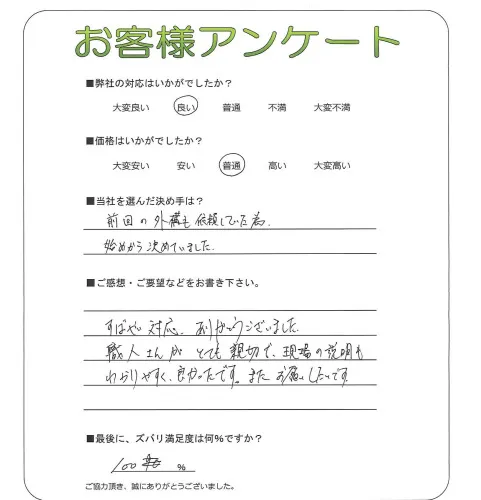 お客様アンケート
■弊社の対応はいかがでしたか？
大変良い 良い 普通 不満 大変不満
■価格はいかがでしたか？
大変安い 安い 普通 高い 大変高い
■当社を選んだ決め手は？
前回の外構も依頼していた為、
始めから決めていました。
■ご感想・ご要望などをお書き下さい。
すばやい対応、ありがとうございました。
職人さんが とても親切で、現場の説明も
わかりやすく、良かったです。また お願いしたいです。
■最後に、ズバリ満足度は何%ですか？
100 %
ご協力頂き、誠にありがとうございました。